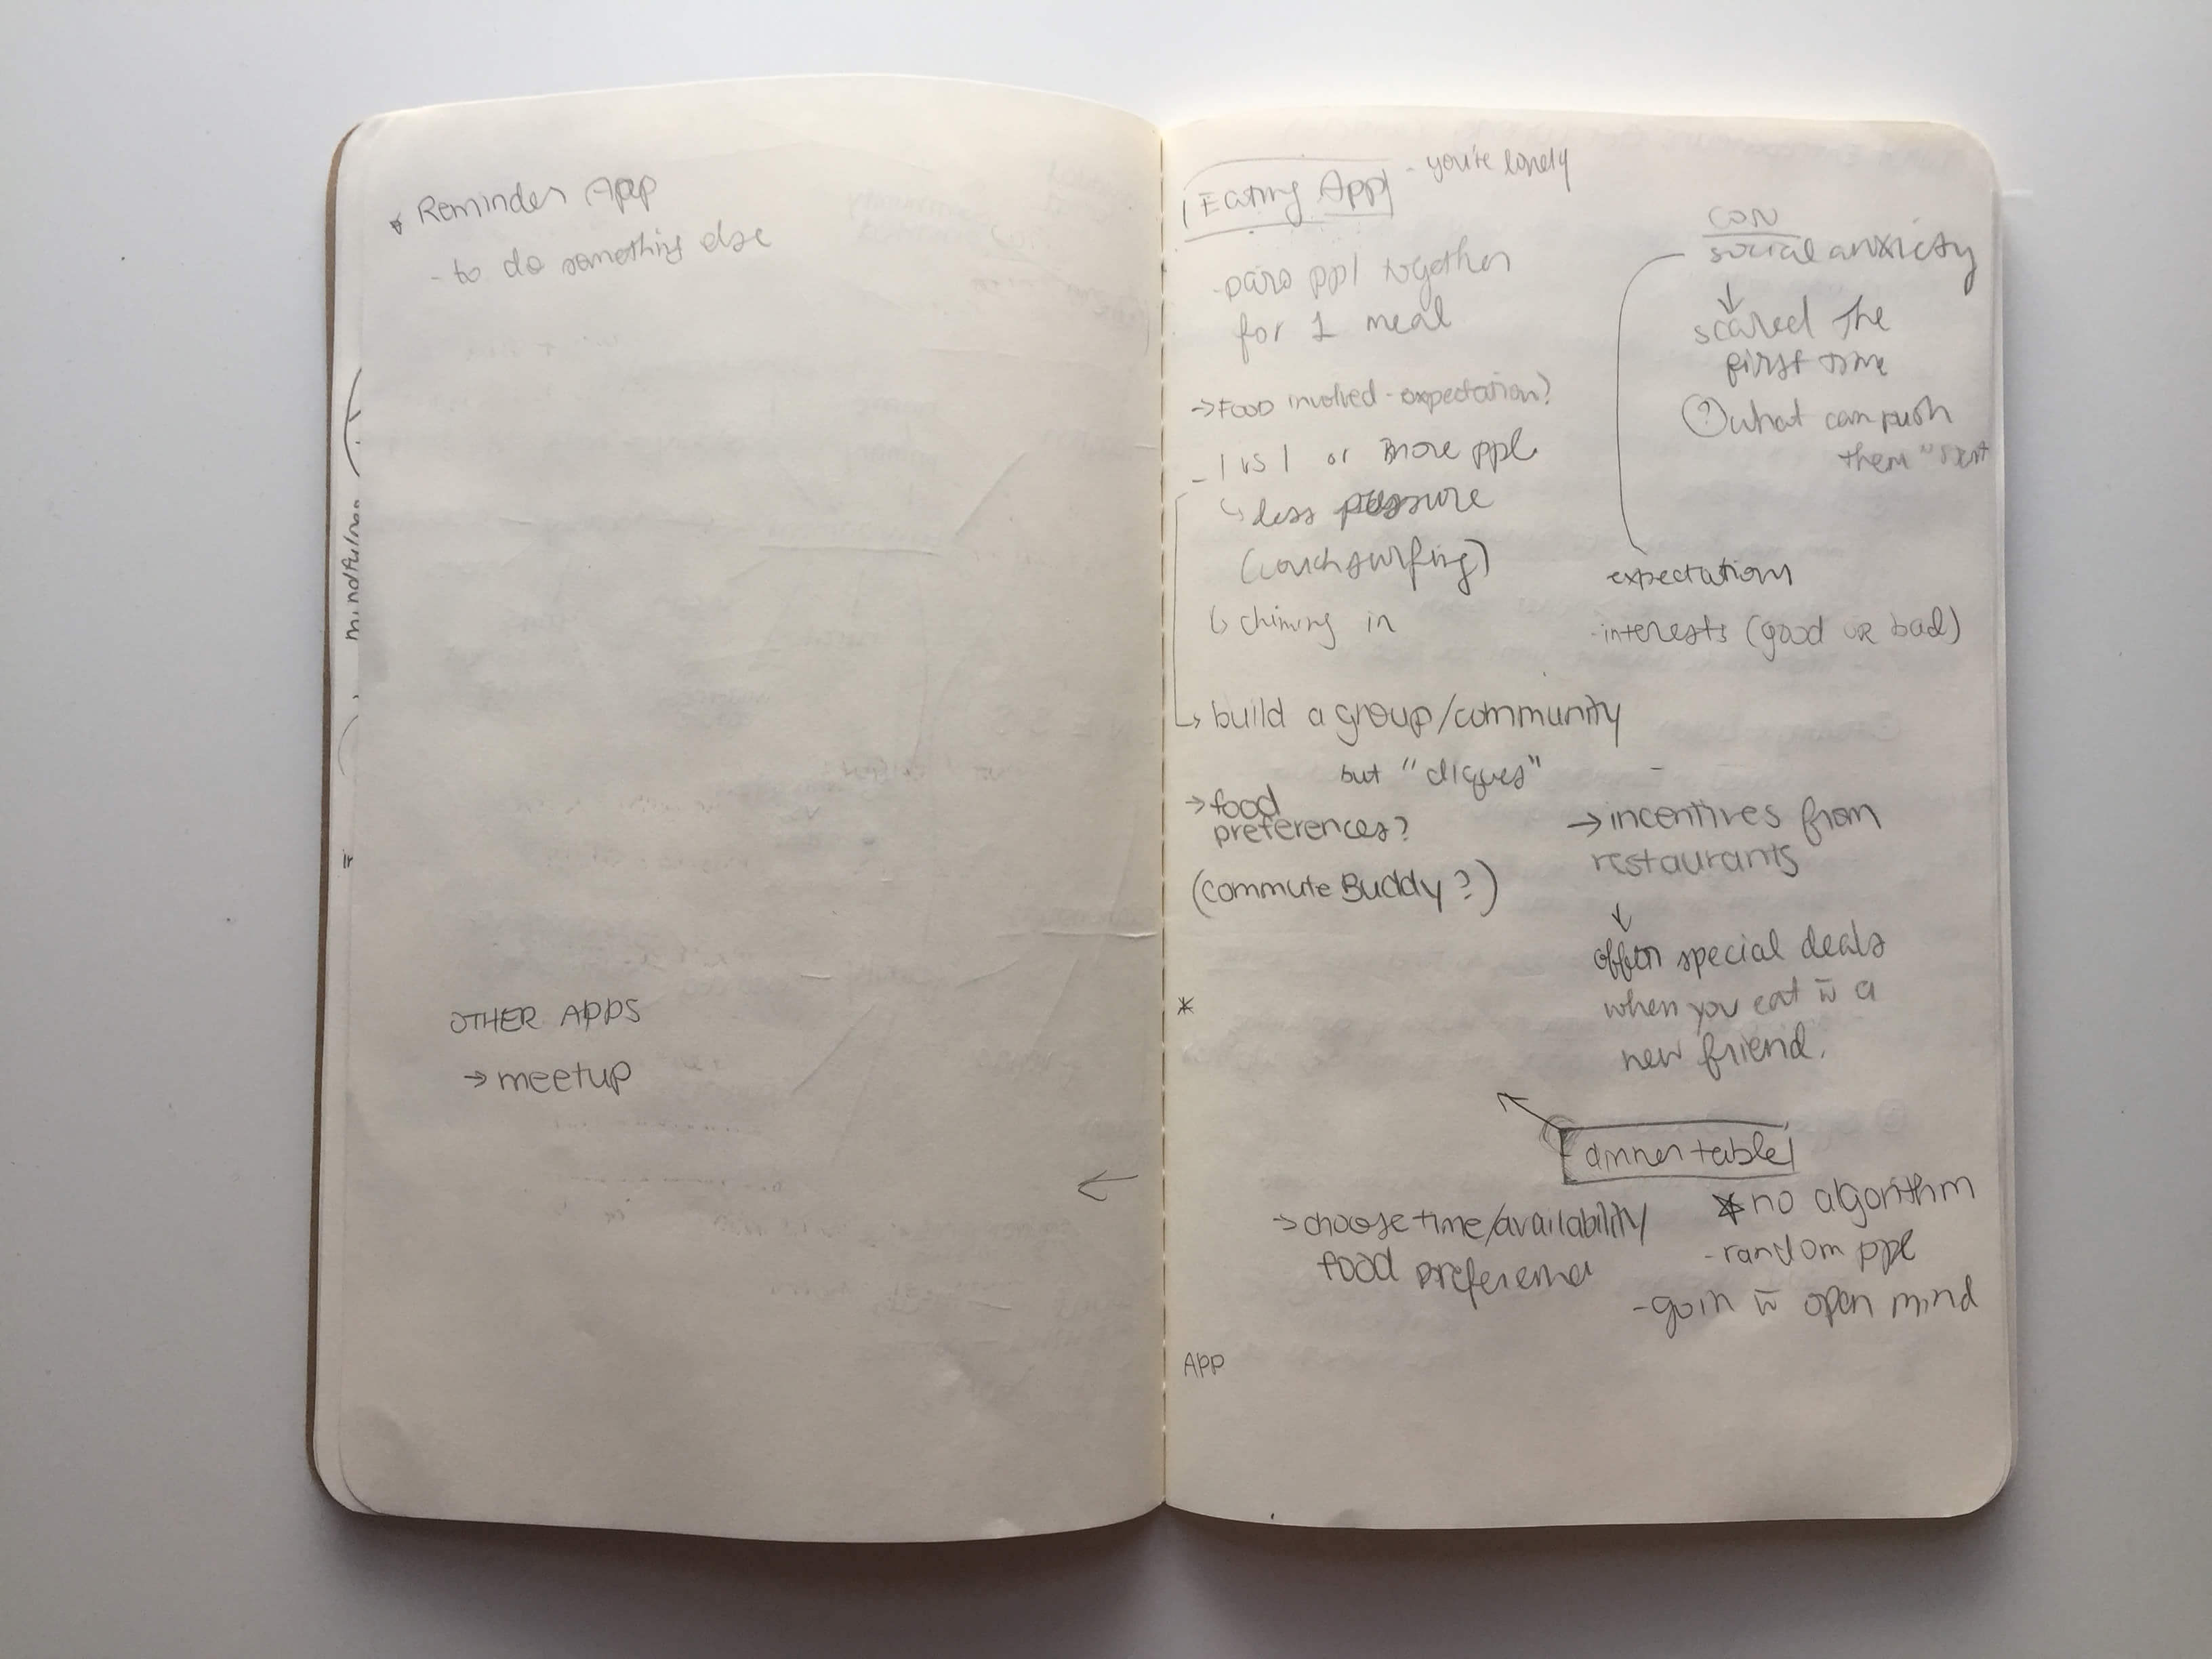 Reminder App
- to do something else
mindfulness
OTHER APPS
→ meetup
←
Eating App - you're lonely
- pairs ppl together
for 1 meal
→ FOOD involved - expectation?
- 1 vs 1 or more ppl
↳ less pressure
(couchsurfing)
↳ chiming in
↳ build a group/community
but "cliques"
→ food
preferences?
(commute Buddy?)
*
CON
social anxiety
↓
scared the
first time
? what can push
them
expectations
- interests (good OR bad)
→ incentives from
restaurants
↓
offer special deals
when you eat w̄ a
new friend.
dinner table
→ choose time/availability
food preference
* no algorithm
- random ppl
- go in w̄ open mind
APP